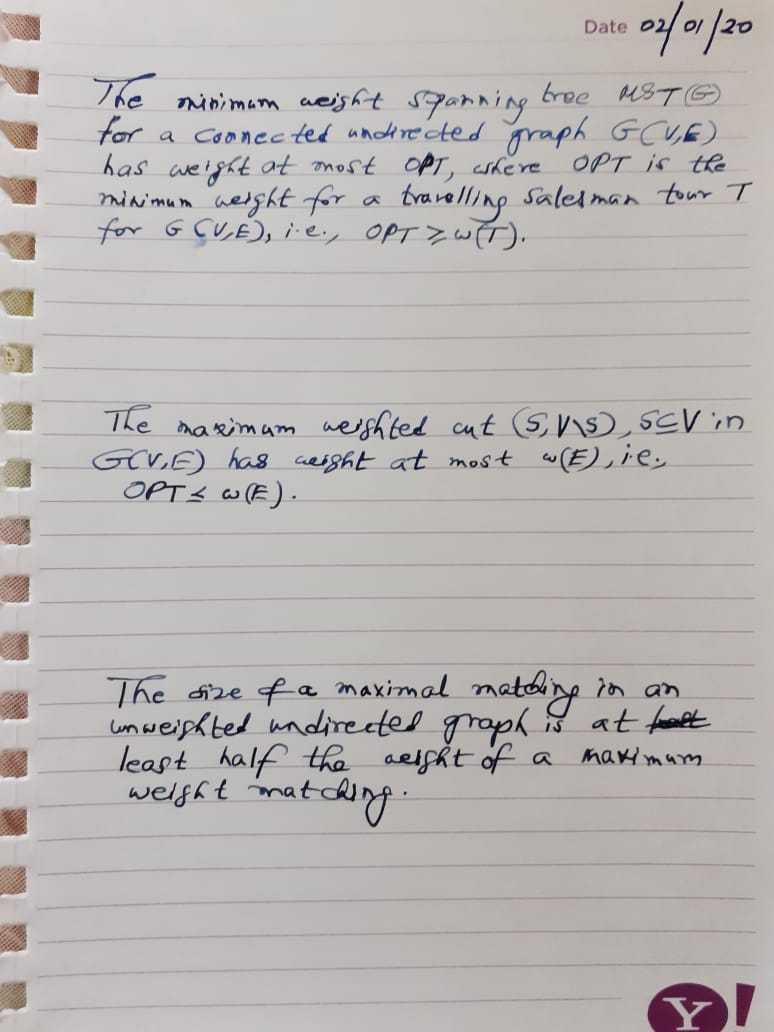 Date 02/01/20
The minimum weight spanning tree MST(G)
for a connected undirected graph G(V,E)
has weight at most OPT, where OPT is the
minimum weight for a travelling salesman tour T
for G(V,E), i.e., OPT ≥ w(T).
The maximum weighted cut (S,V\S), S⊆V in
G(V,E) has weight at most w(E), i.e.,
OPT ≤ w(E).
The size of a maximal matching in an
unweighted undirected graph is at
least half the weight of a maximum
weight matching.
Y!